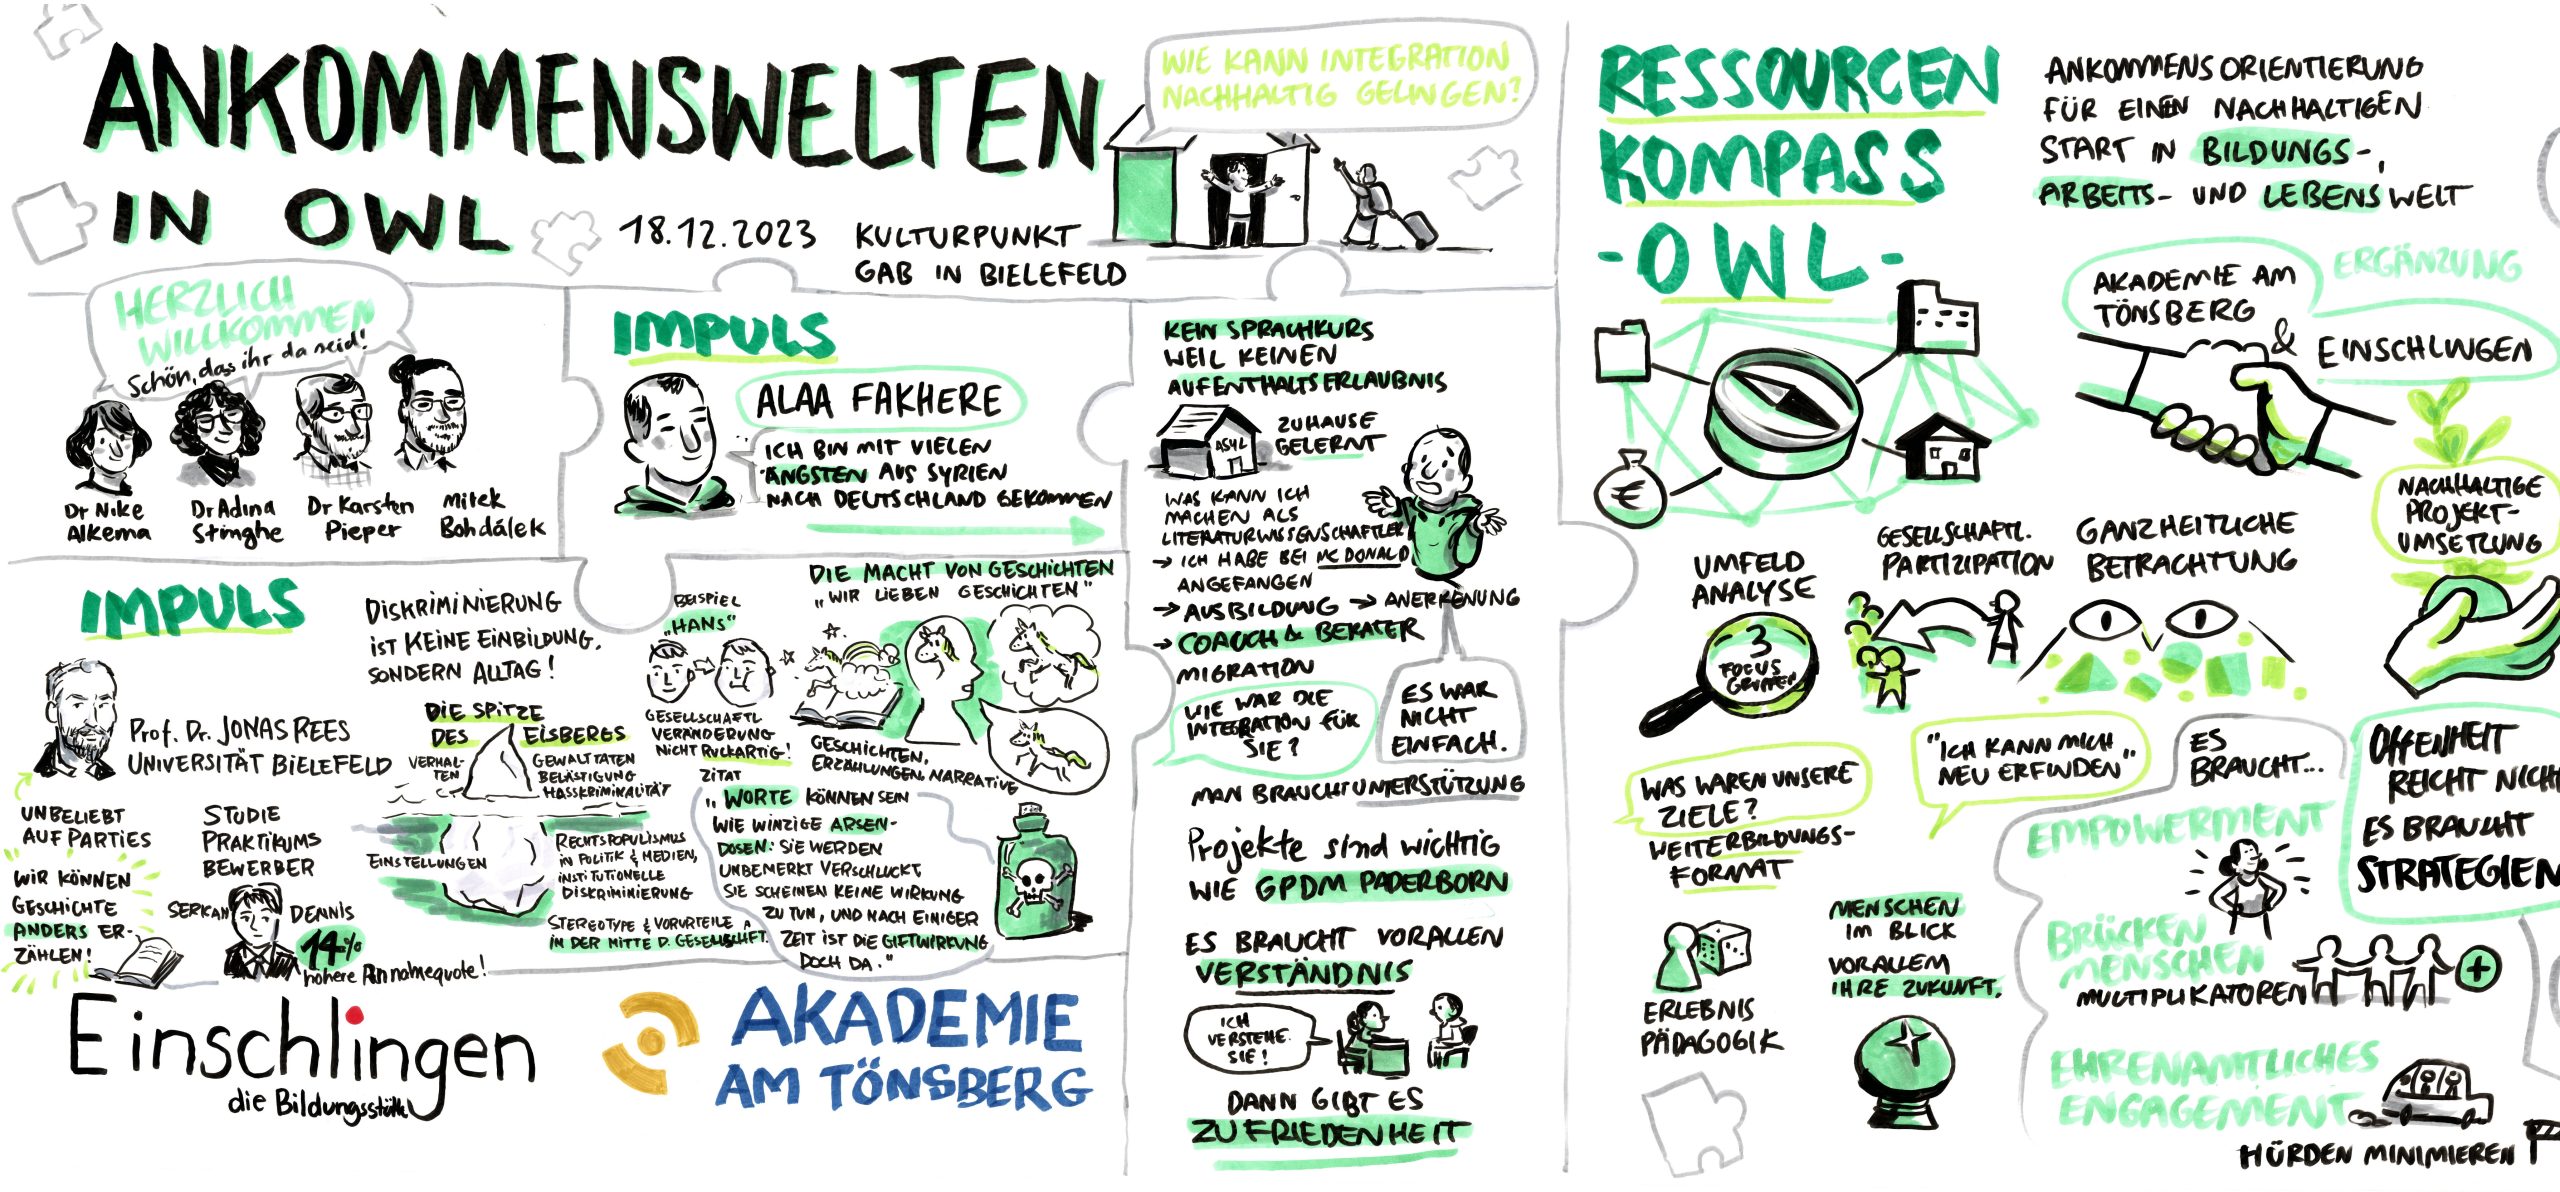 ANKOMMENSWELTEN
IN OWL
18.12.2023
KULTURPUNKT
GAB IN BIELEFELD
WIE KANN INTEGRATION
NACHHALTIG GELINGEN?
HERZLICH
WILLKOMMEN
Schön, dass ihr da seid!
Dr Nike
Alkema
Dr Adina
Stinghe
Dr Karsten
Pieper
Mirek
Bohdálek
IMPULS
ALAA FAKHERE
ICH BIN MIT VIELEN
ÄNGSTEN AUS SYRIEN
NACH DEUTSCHLAND GEKOMMEN
KEIN SPRACHKURS
WEIL KEINEN
AUFENTHALTSERLAUBNIS
ASYL
ZUHAUSE
GELERNT
WAS KANN ICH
MACHEN ALS
LITERATURWISSENSCHAFTLER
→ ICH HABE BEI MC DONALD
ANGEFANGEN
→ AUSBILDUNG → ANERKENUNG
→ COAUCH & BERATER
MIGRATION
WIE WAR DIE
INTEGRATION FÜR
SIE?
ES WAR
NICHT
EINFACH.
MAN BRAUCHT UNTERSTÜTZUNG
Projekte sind wichtig
WIE GPDM PADERBORN
ES BRAUCHT VORALLEN
VERSTÄNDNIS
ICH
VERSTEHE
SIE!
DANN GIBT ES
ZUFRIEDENHEIT
IMPULS
Prof. Dr. JONAS REES
UNIVERSITÄT BIELEFELD
UNBELIEBT
AUF PARTIES
WIR KÖNNEN
GESCHICHTE
ANDERS ER-
ZÄHLEN!
STUDIE
PRAKTIKUMS
BEWERBER
SERKAN
DENNIS
14%
höhere Annahmequote!
DISKRIMINIERUNG
IST KEINE EINBILDUNG,
SONDERN ALLTAG!
DIE SPITZE
DES EISBERGS
VERHAL-
TEN
GEWALTTATEN
BELÄSTIGUNG
HASSKRIMINALITÄT
EINSTELLUNGEN
RECHTSPOPULISMUS
IN POLITIK & MEDIEN,
INSTITUTIONELLE
DISKRIMINIERUNG
STEREOTYPE & VORURTEILE
IN DER MITTE D. GESELLSCHAFT.
BEISPIEL
„HANS"
GESELLSCHAFTL
VERÄNDERUNG
NICHT RUCKARTIG!
DIE MACHT VON GESCHICHTEN
„WIR LIEBEN GESCHICHTEN"
GESCHICHTEN,
ERZÄHLUNGEN, NARRATIVE
ZITAT
„WORTE KÖNNEN SEIN
WIE WINZIGE ARSEN-
DOSEN: SIE WERDEN
UNBEMERKT VERSCHLUCKT,
SIE SCHEINEN KEINE WIRKUNG
ZU TUN, UND NACH EINIGER
ZEIT IST DIE GIFTWIRKUNG
DOCH DA."
Einschlingen
die Bildungsstätte
AKADEMIE
AM TÖNSBERG
RESSOURCEN
KOMPASS
-OWL-
ANKOMMENSORIENTIERUNG
FÜR EINEN NACHHALTIGEN
START IN BILDUNGS-,
ARBEITS- UND LEBENSWELT
€
AKADEMIE AM
TÖNSBERG
&
ERGÄNZUNG
EINSCHLINGEN
NACHHALTIGE
PROJEKT-
UMSETZUNG
UMFELD
ANALYSE
3
FOCUS
GRUPPEN
GESELLSCHAFTL.
PARTIZIPATION
GANZHEITLICHE
BETRACHTUNG
WAS WAREN UNSERE
ZIELE?
WEITERBILDUNGS-
FORMAT
"ICH KANN MICH
NEU ERFINDEN„
ES
BRAUCHT...
OFFENHEIT
REICHT NICH
ES BRAUCHT
STRATEGIEN
EMPOWERMENT
BRÜCKEN
MENSCHEN
MULTIPLIKATOREN
+
EHRENAMTLICHES
ENGAGEMENT
HÜRDEN MINIMIEREN
ERLEBNIS
PÄDAGOGIK
MENSCHEN
IM BLICK
VORALLEM
IHRE ZUKUNFT.